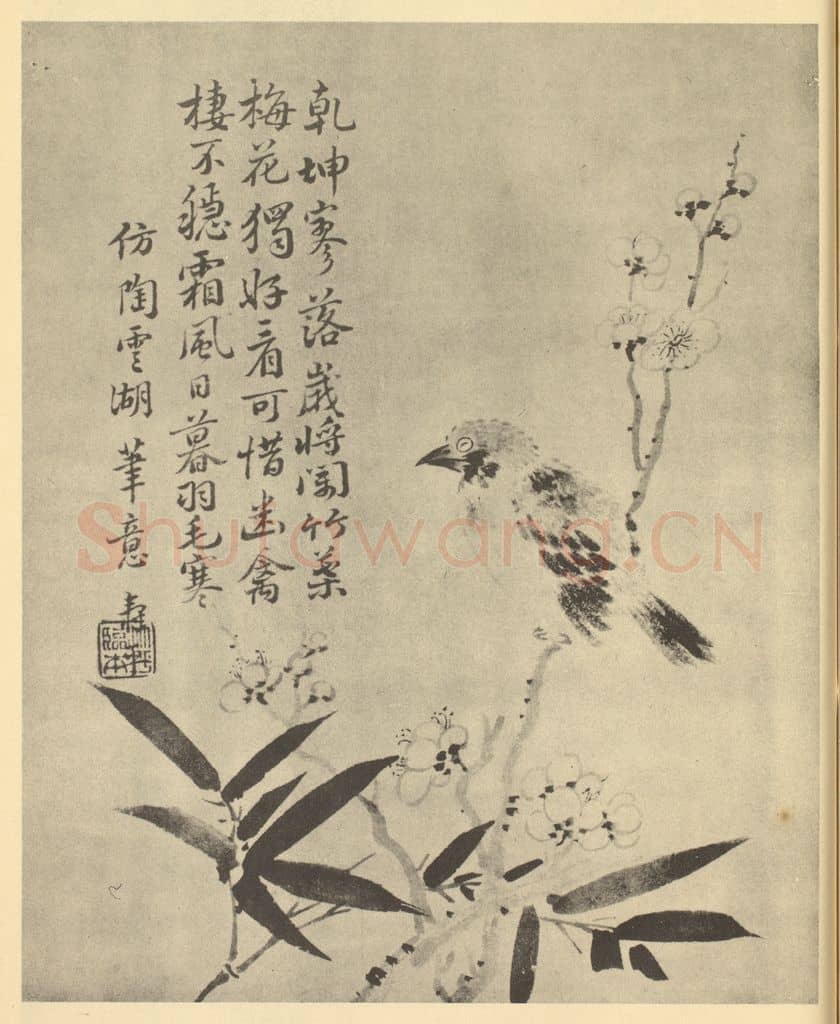 乾坤寥落歲將闌竹葉
梅花獨好看可惜幽禽
棲不穩霜風日暮羽毛寒
仿陶雲湖筆意 壽
Shufawang.CN